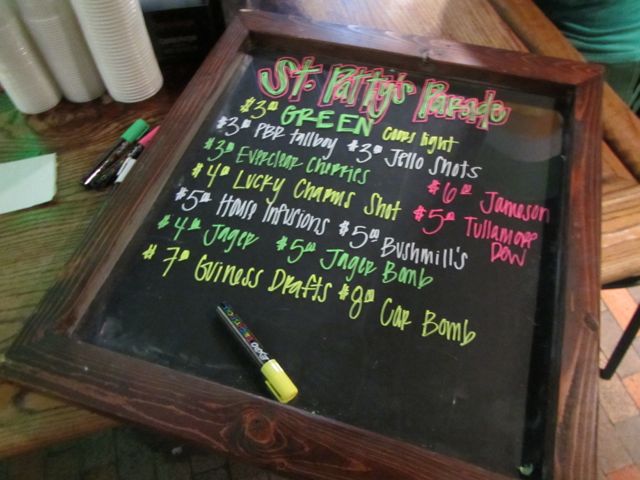 St. Patty's Parade
$3.00 GREEN Coors light
$3.00 PBR tallboy $3.00 Jello Shots
$3.00 Everclear Cherries $6.00 Jameson
$4.00 Lucky Charms Shot $5.00 Tullamore Dew
$5.00 House Infusions $5.00 Bushmill's
$4.00 Jager $5.00 Jager Bomb
$7.00 Guiness Drafts $8.00 Car Bomb